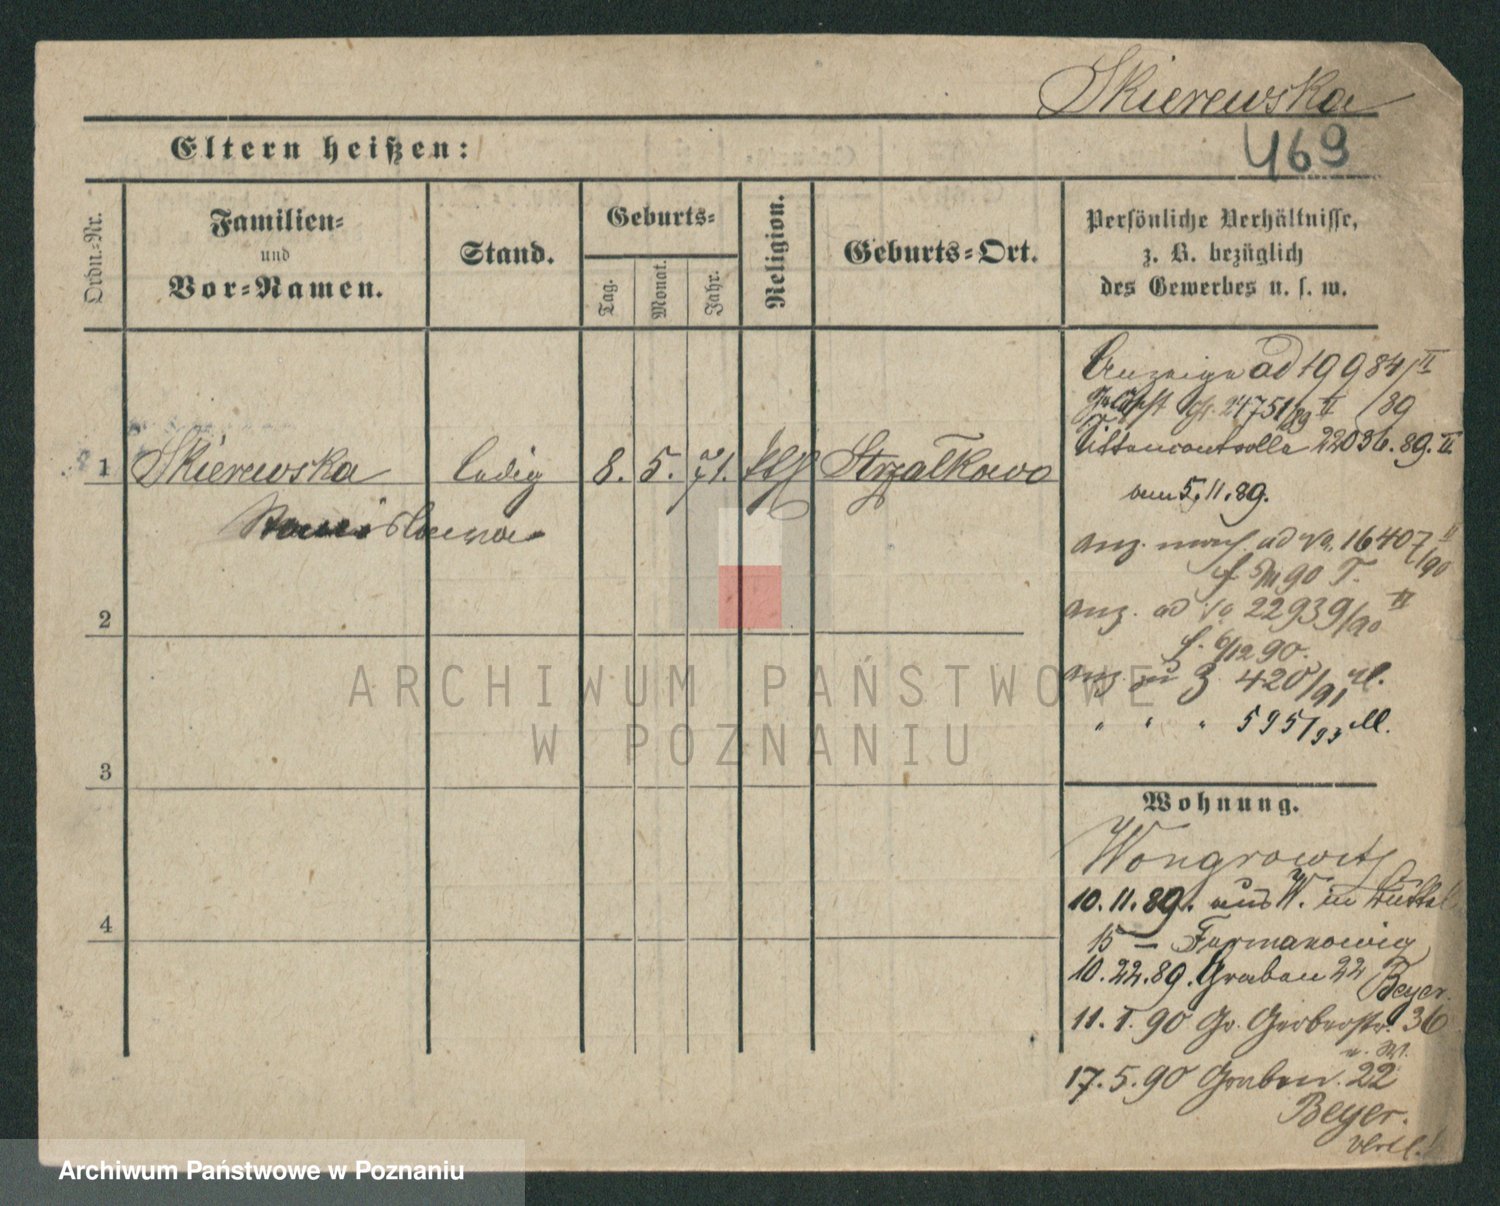 Skierewska
469
Eltern heißen:
Ordn.-Nr.
Familien-
und
Vor-Namen.
Stand.
Geburts-
Tag.
Monat.
Jahr.
Religion.
Geburts-Ort.
Persönliche Verhältnisse,
z. B. bezüglich
des Gewerbes u. s. w.
1 Skierewska ledig 8. 5. 71. kth Strzalkowo
Stanislawa
2
3
4
Anzeige ad 19984/II
/89
Sittencontrolle 22036.89.II
vom 5.11.89.
Anz. ad 16407 II/90
90 T.
Anz. ad 22939/90 II
f. 6/12 90.
Anz. zu 3 420/91
" " " 595/93
Wohnung.
Wongrowitz
10.11.89. aus W. in
15 — Furmanowicz
10.22.89. Graben 22
Beyer.
11.1.90 Gr. Gerberstr. 36
17.5.90 Graben. 22
Beyer.
ARCHIWUM PAŃSTWOWE
W POZNANIU
Archiwum Państwowe w Poznaniu